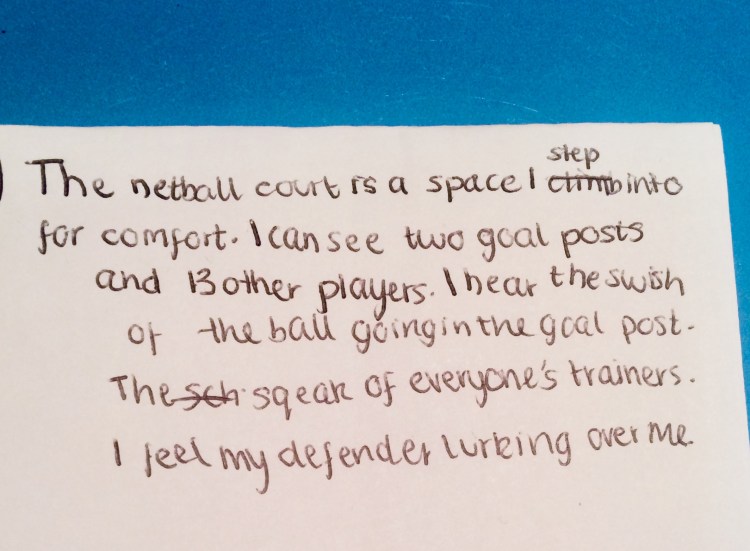 The netball court is a space I step into
for comfort. I can see two goal posts
and 13 other players. I hear the swish
of the ball going in the goal post.
The sqeak of everyone's trainers.
I feel my defender lurking over me.